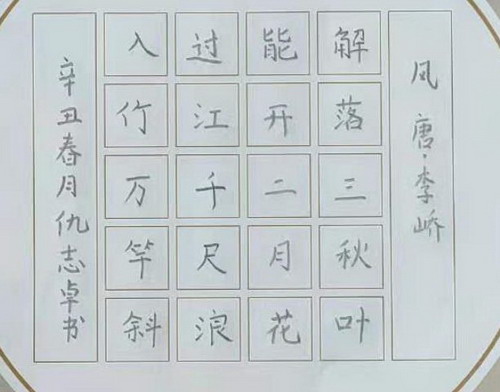 风 唐·李峤
解落三秋叶
能开二月花
过江千尺浪
入竹万竿斜
辛丑春月仇志卓书